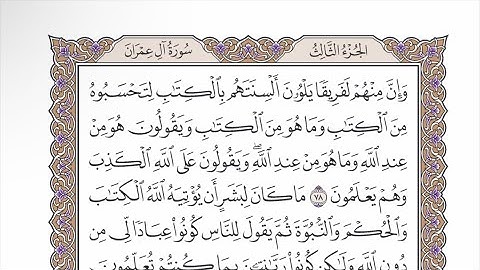 الجزء الثالث
سورة آل عمران
وَإِنَّ مِنْهُمْ لَفَرِيقًا يَلْوُۥنَ أَلْسِنَتَهُم بِالْكِتَٰبِ لِتَحْسَبُوهُ
مِنَ الْكِتَٰبِ وَمَا هُوَ مِنَ الْكِتَٰبِ وَيَقُولُونَ هُوَ مِنْ
عِندِ اللَّهِ وَمَا هُوَ مِنْ عِندِ اللَّهِۖ وَيَقُولُونَ عَلَى اللَّهِ الْكَذِبَ
وَهُمْ يَعْلَمُونَ ٧٨ مَا كَانَ لِبَشَرٍ أَن يُؤْتِيَهُ اللَّهُ الْكِتَٰبَ
وَالْحُكْمَ وَالنُّبُوَّةَ ثُمَّ يَقُولَ لِلنَّاسِ كُونُوا۟ عِبَادًا لِّي مِن
دُونِ اللَّهِ وَلَٰكِن كُونُوا۟ رَبَّٰنِيِّۦنَ بِمَا كُنتُمْ تُعَلِّمُونَ